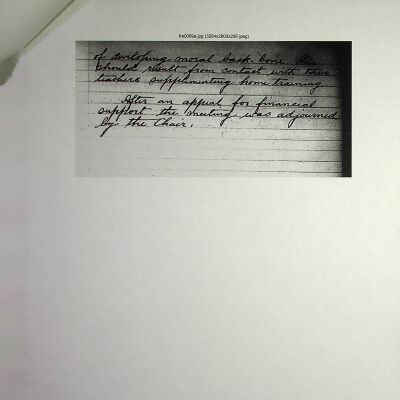 fra0089a.jpg (3264x2800x256 jpeg)
of developing moral back bone. This
should result from contact with their
teachers supplementing home training.
After an appeal for financial
support the meeting was adjourned
by the Chair.